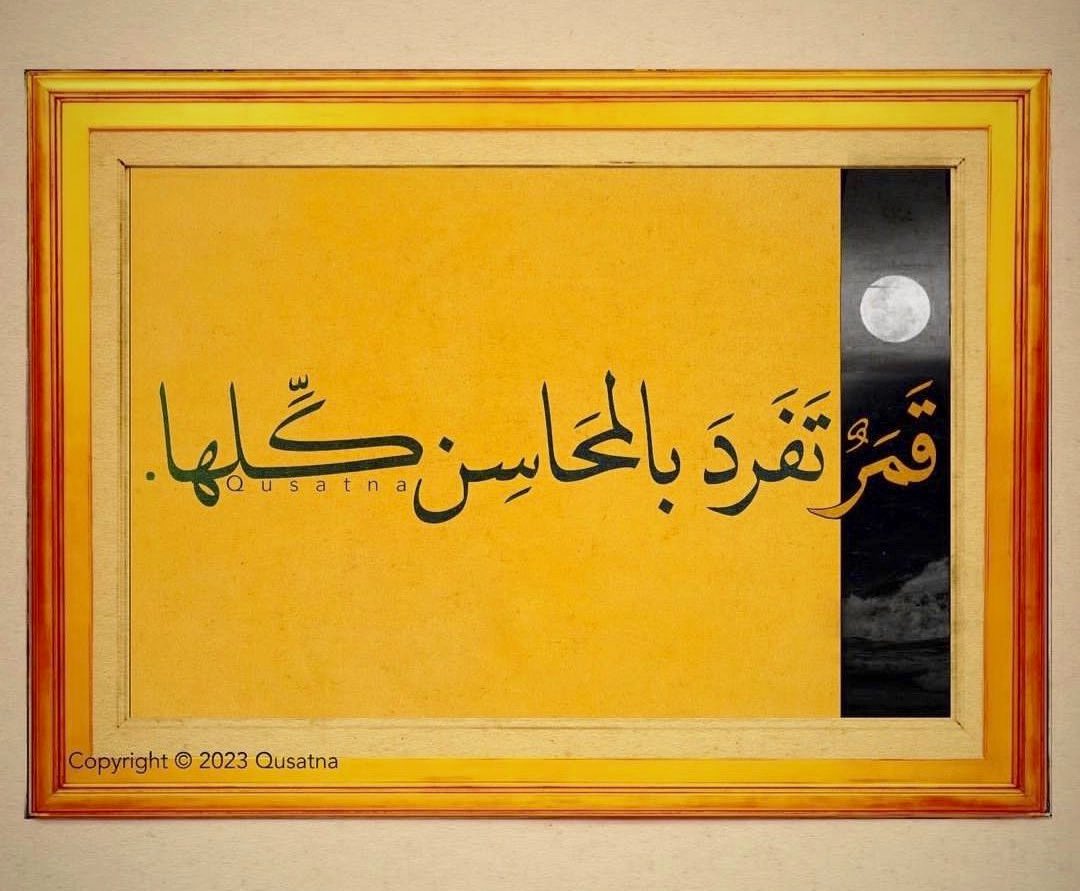 قَمَرٌ تَفَردَ بالمحَاسِن كلِّها.
Qusatna
Copyright © 2023 Qusatna